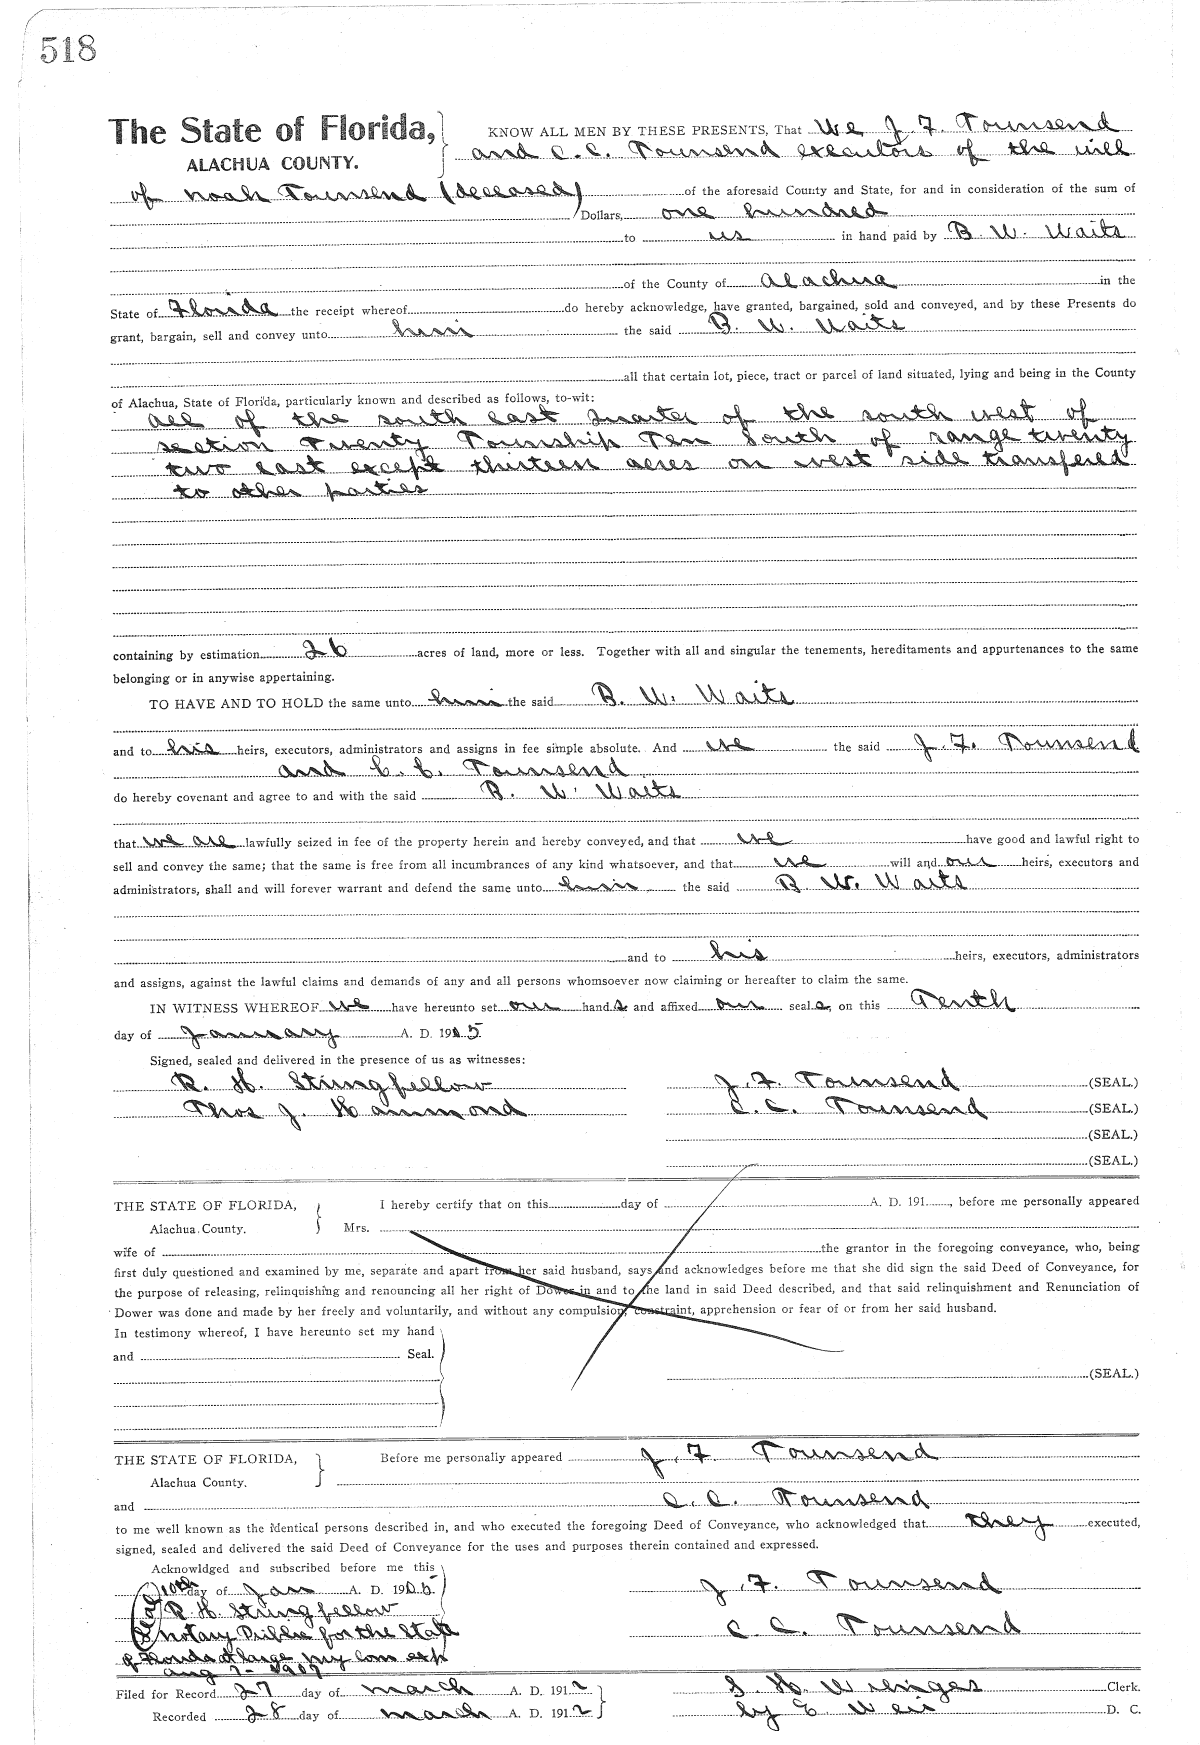 518
The State of Florida,
ALACHUA COUNTY.
KNOW ALL MEN BY THESE PRESENTS, That We J. F. Townsend
and C. C. Townsend executors of the will
of Noah Townsend (deceased) of the aforesaid County and State, for and in consideration of the sum of
Dollars, one hundred
to us in hand paid by B. W. Waits
of the County of Alachua in the
State of Florida the receipt whereof do hereby acknowledge, have granted, bargained, sold and conveyed, and by these Presents do
grant, bargain, sell and convey unto him the said B. W. Waits
all that certain lot, piece, tract or parcel of land situated, lying and being in the County
of Alachua, State of Florida, particularly known and described as follows, to-wit:
all of the south east quarter of the south west of
section Twenty Township Ten South of range twenty
two east except thirteen acres on west side transfered
to other parties
containing by estimation 26 acres of land, more or less. Together with all and singular the tenements, hereditaments and appurtenances to the same
belonging or in anywise appertaining.
TO HAVE AND TO HOLD the same unto him the said B. W. Waits
and to his heirs, executors, administrators and assigns in fee simple absolute. And we the said J. F. Townsend
and C. C. Townsend
do hereby covenant and agree to and with the said B. W. Waits
that we are lawfully seized in fee of the property herein and hereby conveyed, and that we have good and lawful right to
sell and convey the same; that the same is free from all incumbrances of any kind whatsoever, and that we will and our heirs, executors and
administrators, shall and will forever warrant and defend the same unto him the said B. W. Waits
and to his heirs, executors, administrators
and assigns, against the lawful claims and demands of any and all persons whomsoever now claiming or hereafter to claim the same.
IN WITNESS WHEREOF we have hereunto set our hands and affixed our seals, on this Tenth
day of January A. D. 1905
Signed, sealed and delivered in the presence of us as witnesses:
R. H. Stringfellow J. F. Townsend (SEAL.)
Thos J. Hammond C. C. Townsend (SEAL.)
(SEAL.)
(SEAL.)
THE STATE OF FLORIDA, I hereby certify that on this day of A. D. 191 , before me personally appeared
Alachua County. Mrs.
wife of the grantor in the foregoing conveyance, who, being
first duly questioned and examined by me, separate and apart from her said husband, says and acknowledges before me that she did sign the said Deed of Conveyance, for
the purpose of releasing, relinquishing and renouncing all her right of Dower in and to the land in said Deed described, and that said relinquishment and Renunciation of
Dower was done and made by her freely and voluntarily, and without any compulsion, constraint, apprehension or fear of or from her said husband.
In testimony whereof, I have hereunto set my hand
and Seal.
(SEAL.)
THE STATE OF FLORIDA, Before me personally appeared J. F. Townsend
Alachua County.
and C. C. Townsend
to me well known as the identical persons described in, and who executed the foregoing Deed of Conveyance, who acknowledged that they executed,
signed, sealed and delivered the said Deed of Conveyance for the uses and purposes therein contained and expressed.
Acknowldged and subscribed before me this
10th day of Jan A. D. 1905. J. F. Townsend
R. H. Stringfellow
Notary Public for the State C. C. Townsend
of Florida at large my com exp
Aug 7- 1907
Filed for Record 27 day of March A. D. 1912 Clerk.
Recorded 28 day of March A. D. 1912 by E Weir D. C.